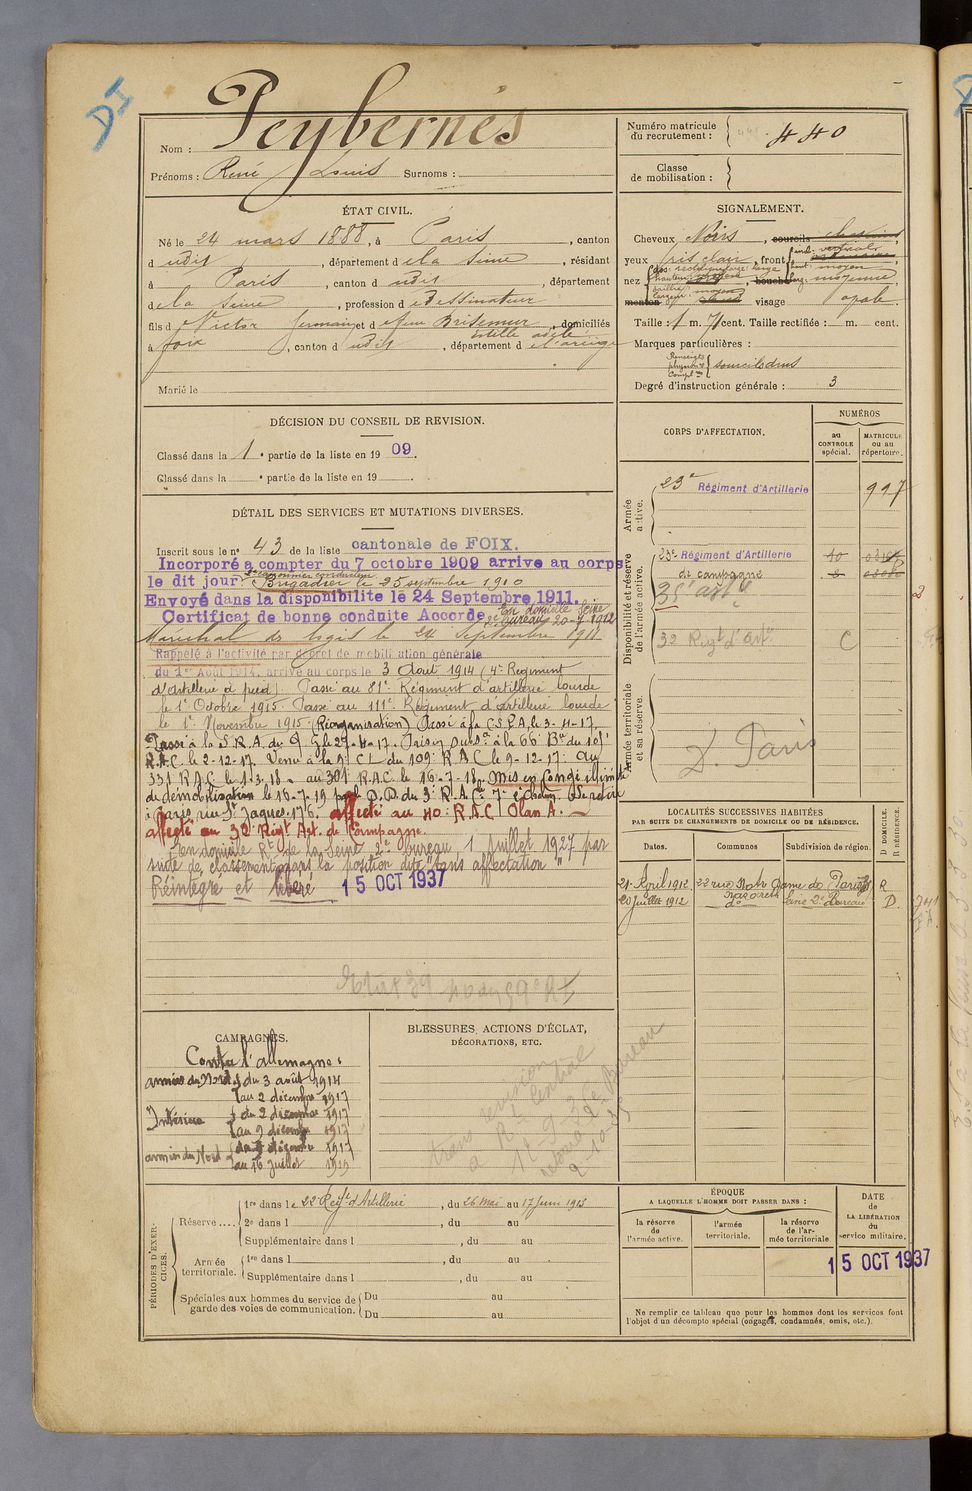 DI
Nom : Peybernès
Prénoms : René Louis Surnoms :
Numéro matricule
du recrutement : 440
Classe
de mobilisation :
ÉTAT CIVIL.
Né le 24 mars 1888, à Paris, canton
d udit, département de la Seine, résidant
à Paris, canton d udit, département
de la Seine, profession de dessinateur
fils de Victor Germain et de feue Brisemur, domiciliés
à Foix, canton d udit, département de l'ariège
Marié le
SIGNALEMENT.
Cheveux Noirs, sourcils
yeux gris clair, front
nez
menton visage ovale
Taille : 1 m. 71 cent. Taille rectifiée : m. cent.
Marques particulières :
Degré d'instruction générale : 3
DÉCISION DU CONSEIL DE REVISION.
Classé dans la 1e partie de la liste en 1909.
Classé dans la e partie de la liste en 19 .
DÉTAIL DES SERVICES ET MUTATIONS DIVERSES.
Inscrit sous le n° 43 de la liste cantonale de FOIX.
Incorporé a compter du 7 octobre 1909 arrive au corps
le dit jour. 2e canonnier conducteur
Brigadier le 25 septembre 1910
Envoyé dans la disponibilite le 24 Septembre 1911.
Certificat de bonne conduite Accordé. En domicile Seine
2e bureau 20-7-1912
Maréchal des logis le 24 Septembre 1911
Rappelé à l'activité par décret de mobilisation générale
du 1er Août 1914, arrivé au corps le 3 Août 1914 (4e Régiment
d'Artillerie à pied). Passé au 81e Régiment d'artillerie lourde
le 1er Octobre 1915. Passé au 111e Régiment d'artillerie lourde
le 1er Novembre 1915 (Réorganisation) Passé à la
Passé à la S.R.A. du
R.A.C. le 2-12-17. Venu à la 9e C.L. du 109e RAC le 9-12-17. au
331 R.A.C. le 1-3-18. au 301 R.A.C. le 16-7-18. Mis en Congé illimité
de démobilisation le 16-7-19 par le D.D. du 3e R.A.C. 7e échelon. Se retire
à Paris rue St Jaques 176. affecté au 40e R.A.C. Plan A.
affecté au 32e Regt Art. de Campagne.
En domicile Rt de la Seine 2e bureau 1 Juillet 1927 par
suite de classement dans la position dite "sans affectation"
Réintégré et libéré 15 OCT 1937
CORPS D'AFFECTATION.
NUMÉROS
au
CONTROLE
spécial.
MATRICULE
ou au
répertoire.
Armée
active.
23e Régiment d'Artillerie 997
Disponibilité et réserve
de l'armée active.
23e Régiment d'Artillerie
de campagne
35e art
32 Regt d'art C
Armée territoriale
et sa réserve.
D. Paris
LOCALITÉS SUCCESSIVES HABITÉES
PAR SUITE DE CHANGEMENTS DE DOMICILE OU DE RÉSIDENCE.
Dates. Communes Subdivision de région. D DOMICILE.
R RÉSIDENCE.
21 Avril 1912 22 rue Notre Dame de Nazareth Paris R
20 Juillet 1912 do Seine 2e Bureau D.
CAMPAGNES.
Contre l'allemagne :
armées du Nord du 3 août 1914
au 2 décembre 1917
Intérieur du 2 décembre 1917
au 9 décembre 1917
armées du Nord du 9 décembre 1917
au 16 juillet 1919
BLESSURES, ACTIONS D'ÉCLAT,
DÉCORATIONS, ETC.
PÉRIODES D'EXERCICES.
Réserve .... 1re dans le 22 Regt d'Artillerie, du 26 Mai au 17 Juin 1913
2e dans l , du au
Supplémentaire dans l , du au
Armée
territoriale. 1re dans l , du au
Supplémentaire dans l , du au
Spéciales aux hommes du service de
garde des voies de communication. Du au
Du au
ÉPOQUE
A LAQUELLE L'HOMME DOIT PASSER DANS :
la réserve
de
l'armée active.
l'armée
territoriale.
la réserve
de l'ar-
mée territoriale
DATE
de
LA LIBÉRATION
du
service militaire.
15 OCT 1937
Ne remplir ce tableau que pour les hommes dont les services font
l'objet d'un décompte spécial (engagés, condamnés, omis, etc.).